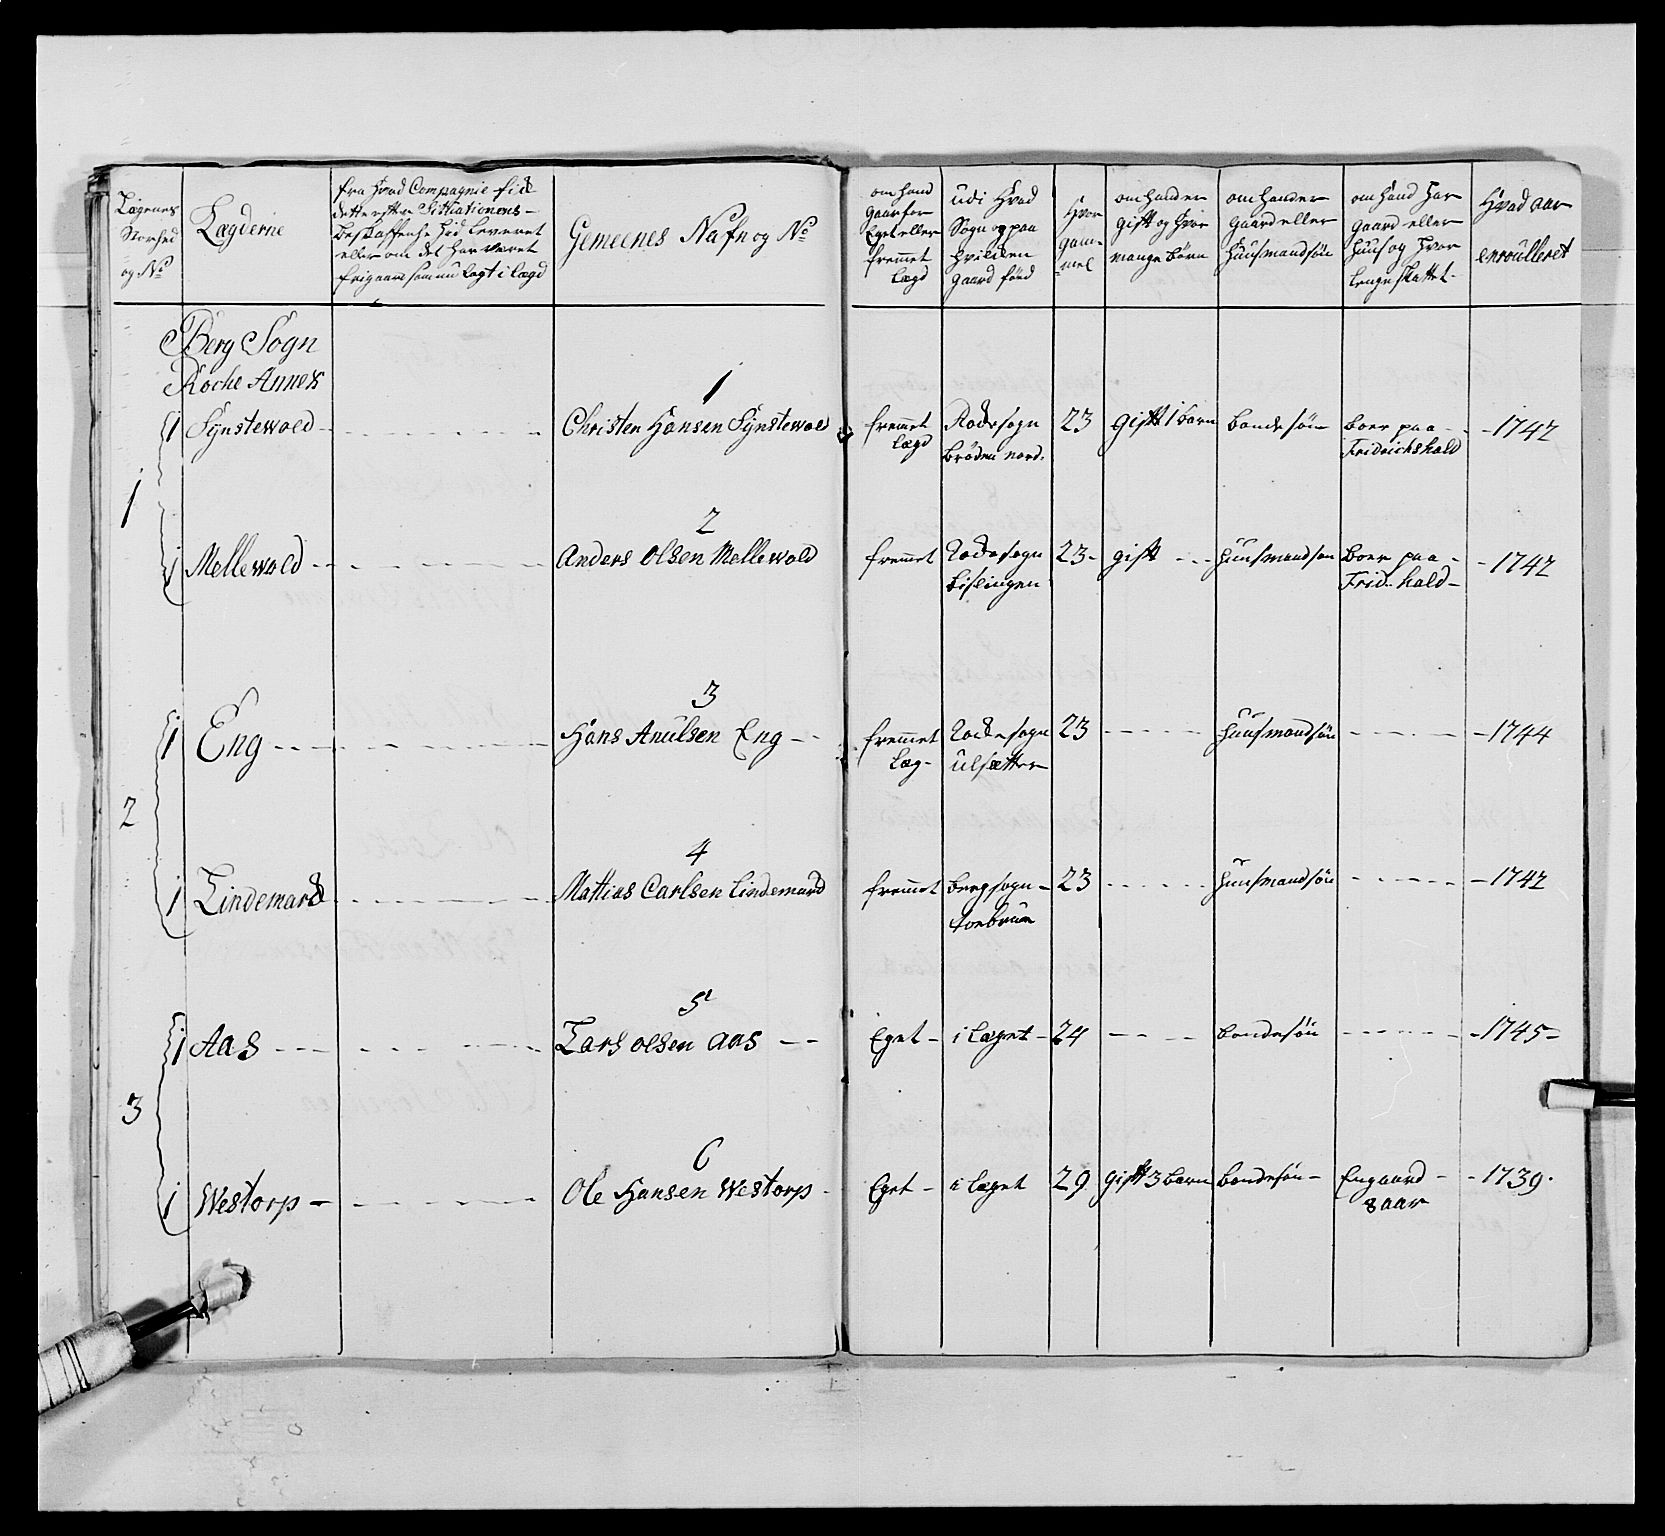 Lægenes
Storhed
og No
Lægderne
fra Hvad Compagnie fid
detter efter Sittiationens
Beskaffenhe Hid Leveret
eller om det Har veret
frigaard som nu lagt i lægd
Gemeenes Nafn og No
om Hand
gaar for
Eget eller
fremmet
Lægd
udi Hvad
Sogn og paa
Hvilcken
gaard fönd
Hvor
gam-
mel
om Hand er
gift og Hvor
mange börn
om Hand er
gaard eller
Huusmandsön
om Hand Har
gaard eller
Huus og Hvor
lenge skattet
Hvad aar
enroulleret
Berg Sogn
Rocke Annex
1
1
1 Synstewold
Christen Hansen Synstewold
fremmet
Lægd
Rodesogn
bröden nord
23
gift 1 barn
bondesön
boer paa
Fridrichshald
1742
2
1 Mellewold
Anders Olsen Mellewold
fremmet
Rodesogn
bislingen
23
gift
Huusmandsön
boer paa
Frid: hald
1742
2
3
1 Eng
Hans Anulsen Eng
fremmet
Læg
Rodesogn
ulsætter
23
Huusmandsön
1744
4
1 Lindemard
Mattias Carlsen Lindemard
fremmet
bergsogn
23
Huusmandsön
1742
3
5
1 Aas
Lars olsen aas
Eget
i Læget
24
bondesön
1745
6
1 Westorp
Ole Hansen Westorp
Eget
i Læget
29
gift 3 barn
bondesön
Engaard
8 aar
1739